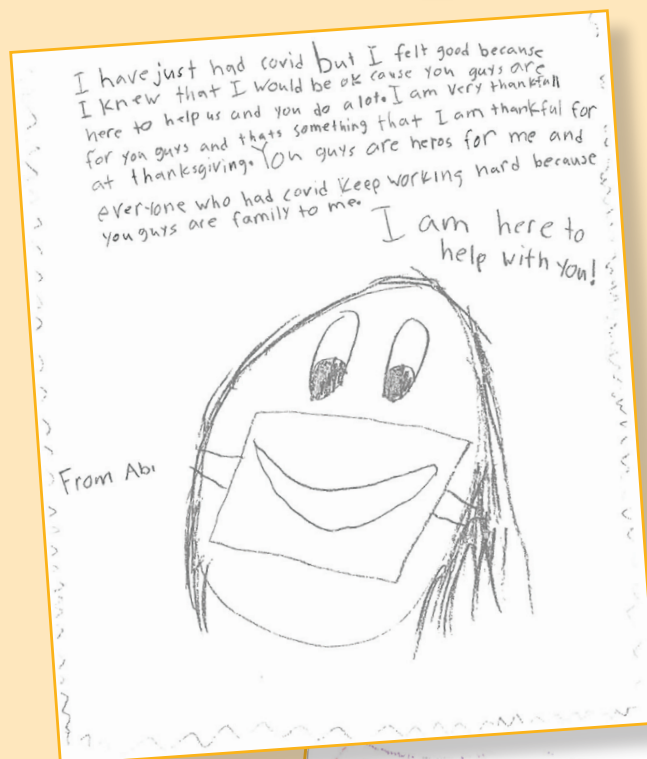 I have just had covid but I felt good because
I knew that I would be ok cause you guys are
here to help us and you do a lot. I am very thankfull
for you guys and thats something that I am thankful for
at thanksgiving. You guys are heros for me and
everyone who had covid keep working hard because
you guys are family to me.
I am here to
help with you!
From Abi